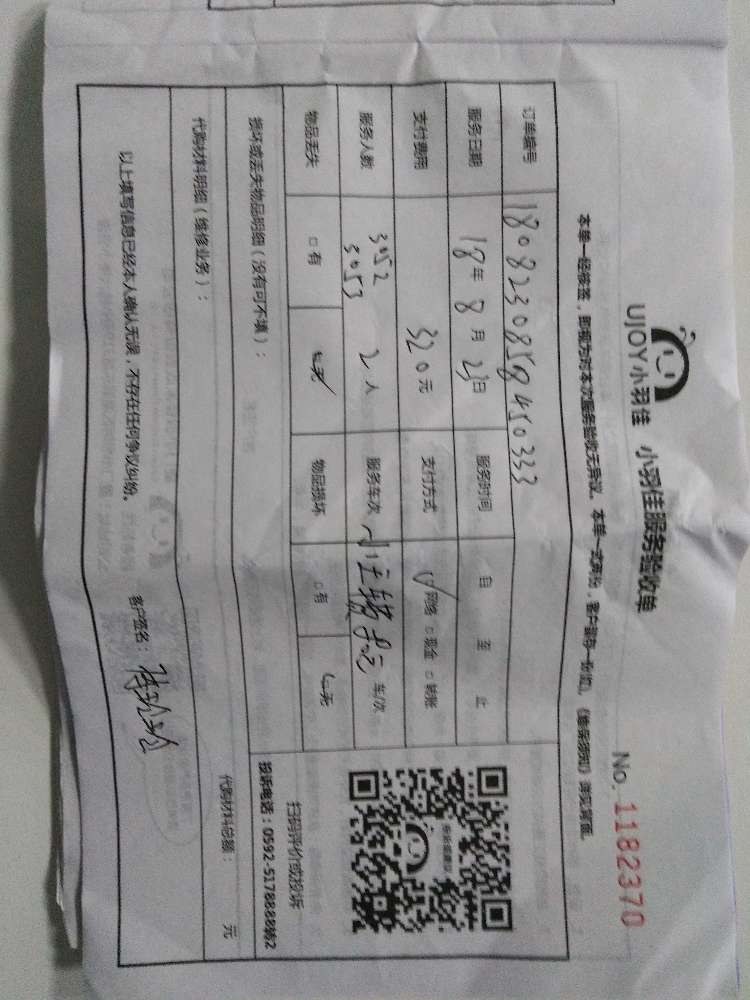 UJOY小羽佳 小羽佳服务验收单
No. 1182370
本单一经接签，即视为对本次服务验收无异议。本单一式两份，客户留存一份
订单编号 180823085845 0333
服务日期 18年 8月 23日 服务时间 自 至 止
支付费用 320元 支付方式 ☑网络 □现金 □转账
服务人数 3052 3053 2人 服务车次 车/次
物品丢失 □有 ☑无 物品损坏 □有 ☑无
损坏或丢失物品明细（没有可不填）：
扫码评价或投诉
投诉电话：0592-5178888转2
代购材料明细（维修业务）：
代购材料总额： 元
以上填写信息已经本人确认无误，不存在任何争议纠纷。
客户签名：